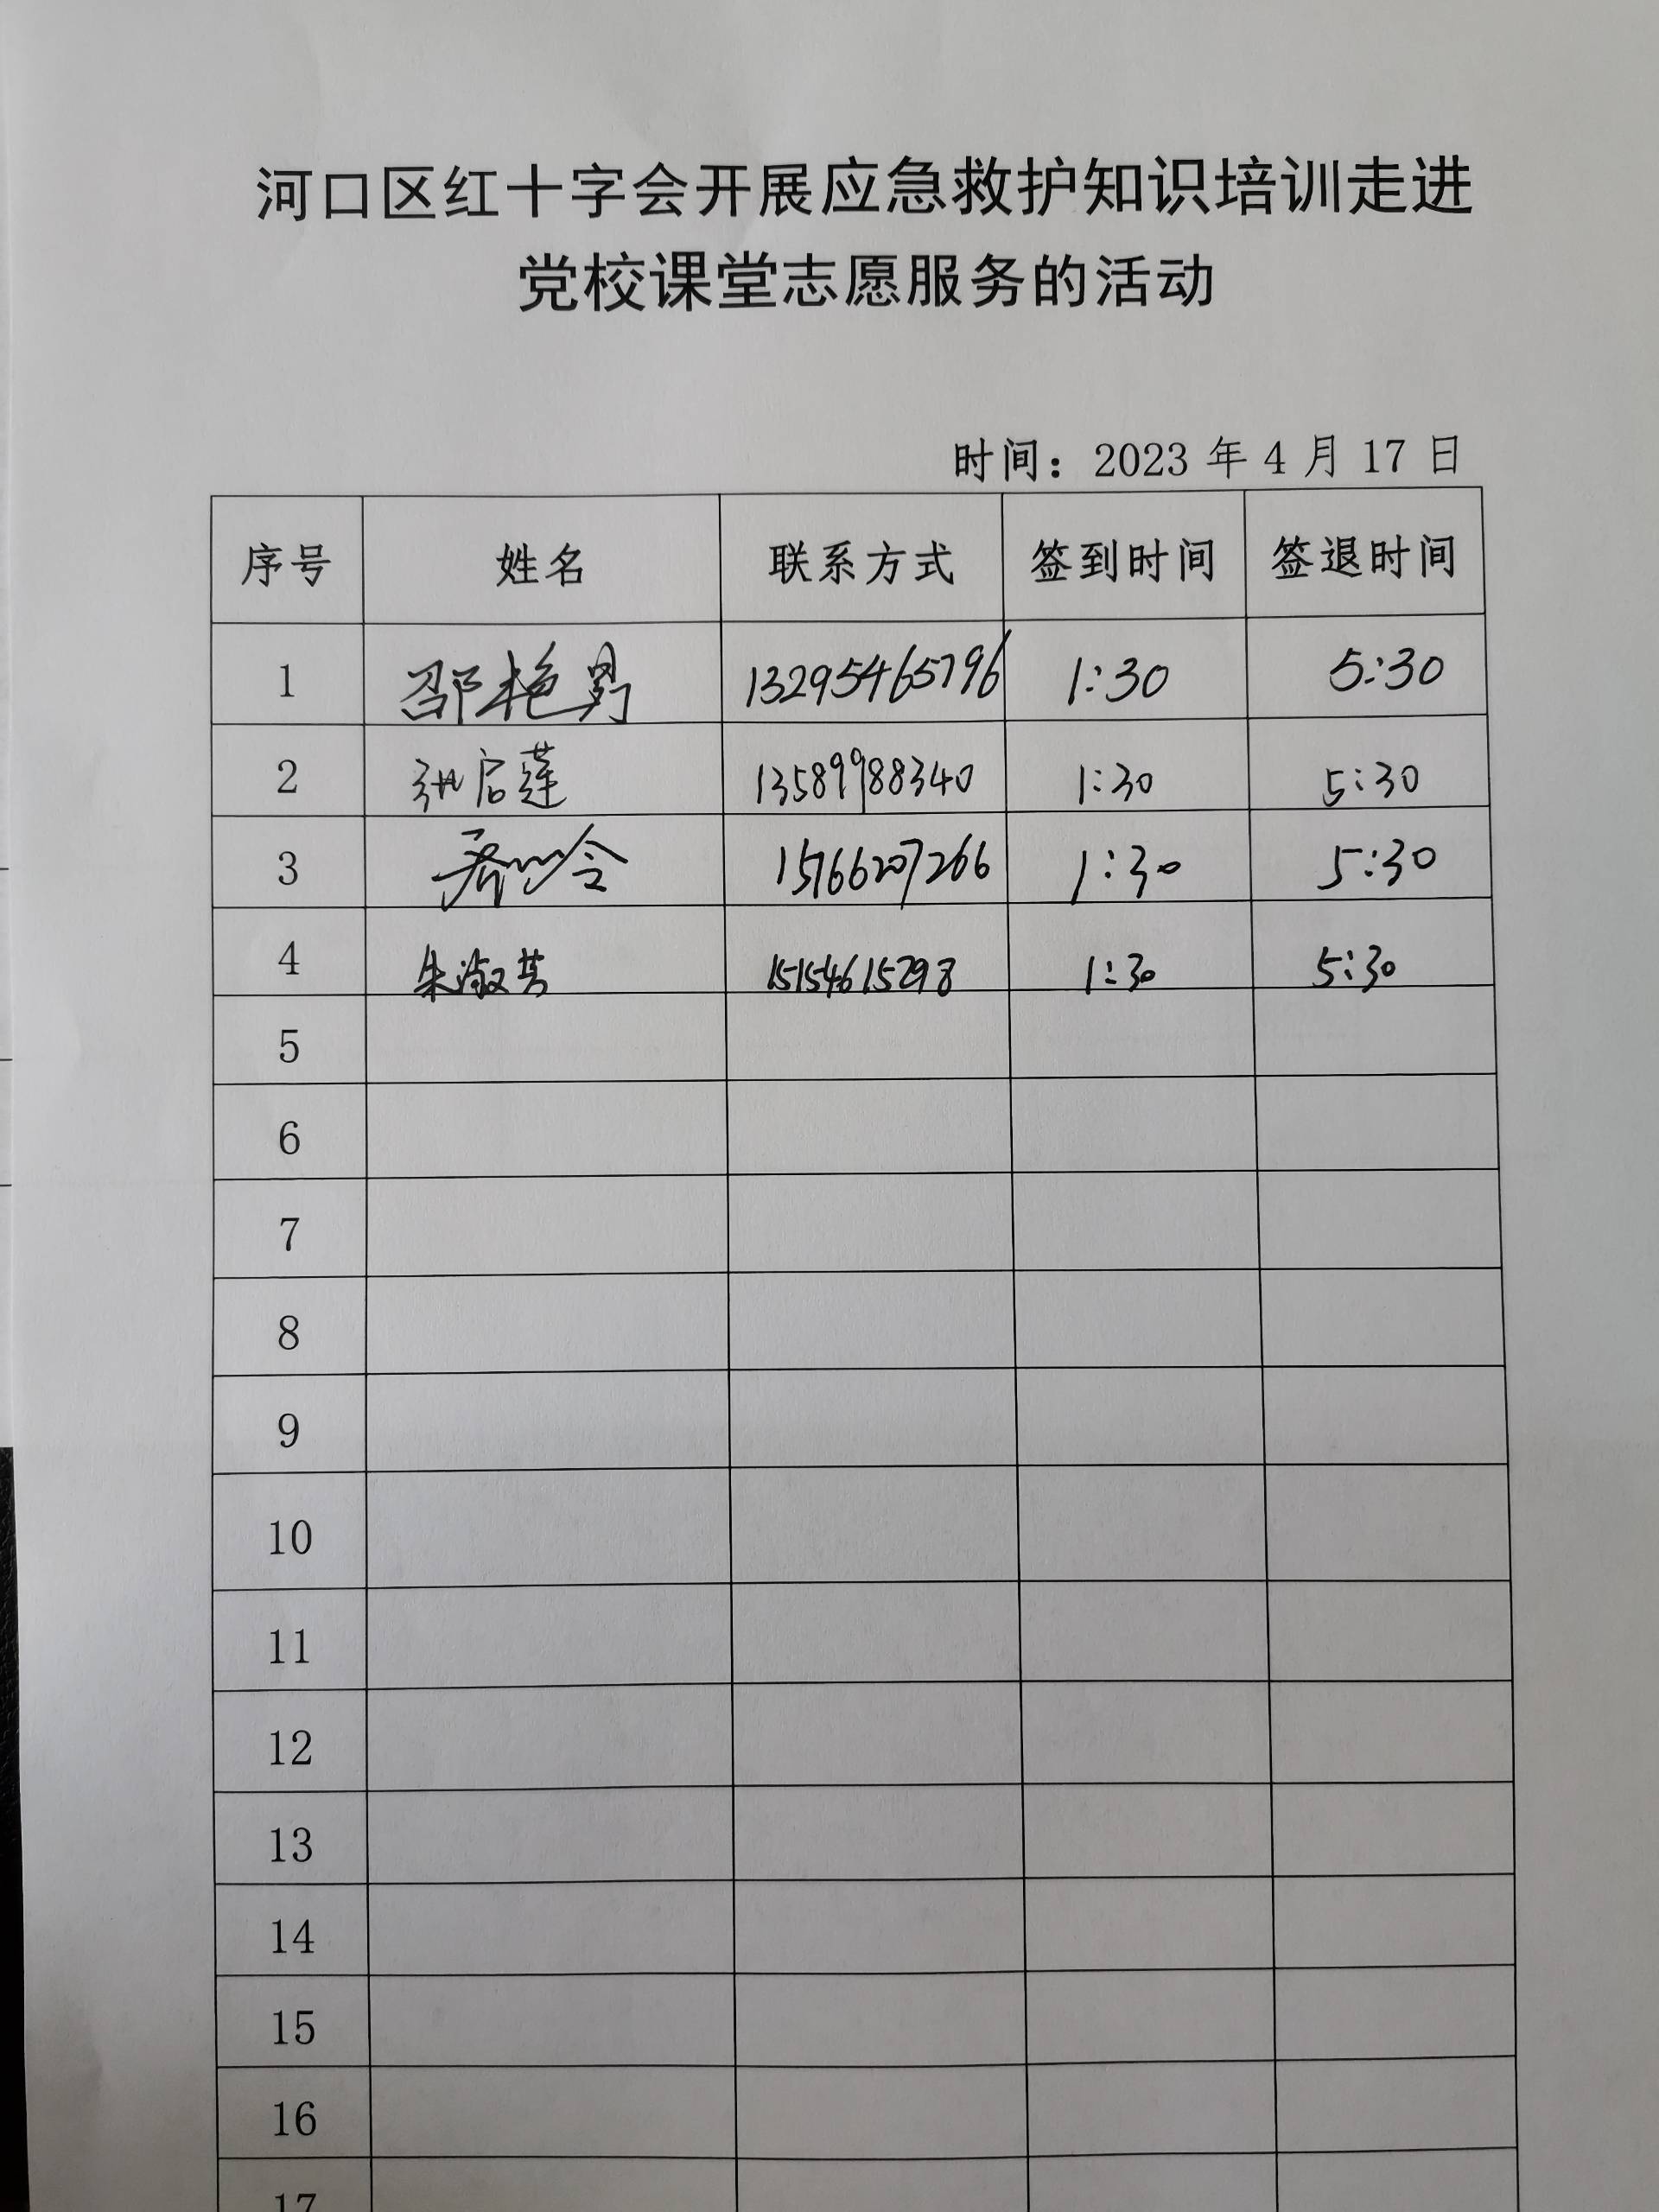 河口区红十字会开展应急救护知识培训走进
党校课堂志愿服务的活动
时间：2023 年 4 月 17 日
序号 姓名 联系方式 签到时间 签退时间
1 邵艳男 13295465796 1:30 5:30
2 启莲 13589988340 1:30 5:30
3 15166207266 1:30 5:30
4 朱淑芳 15154615298 1:30 5:30
5
6
7
8
9
10
11
12
13
14
15
16
17